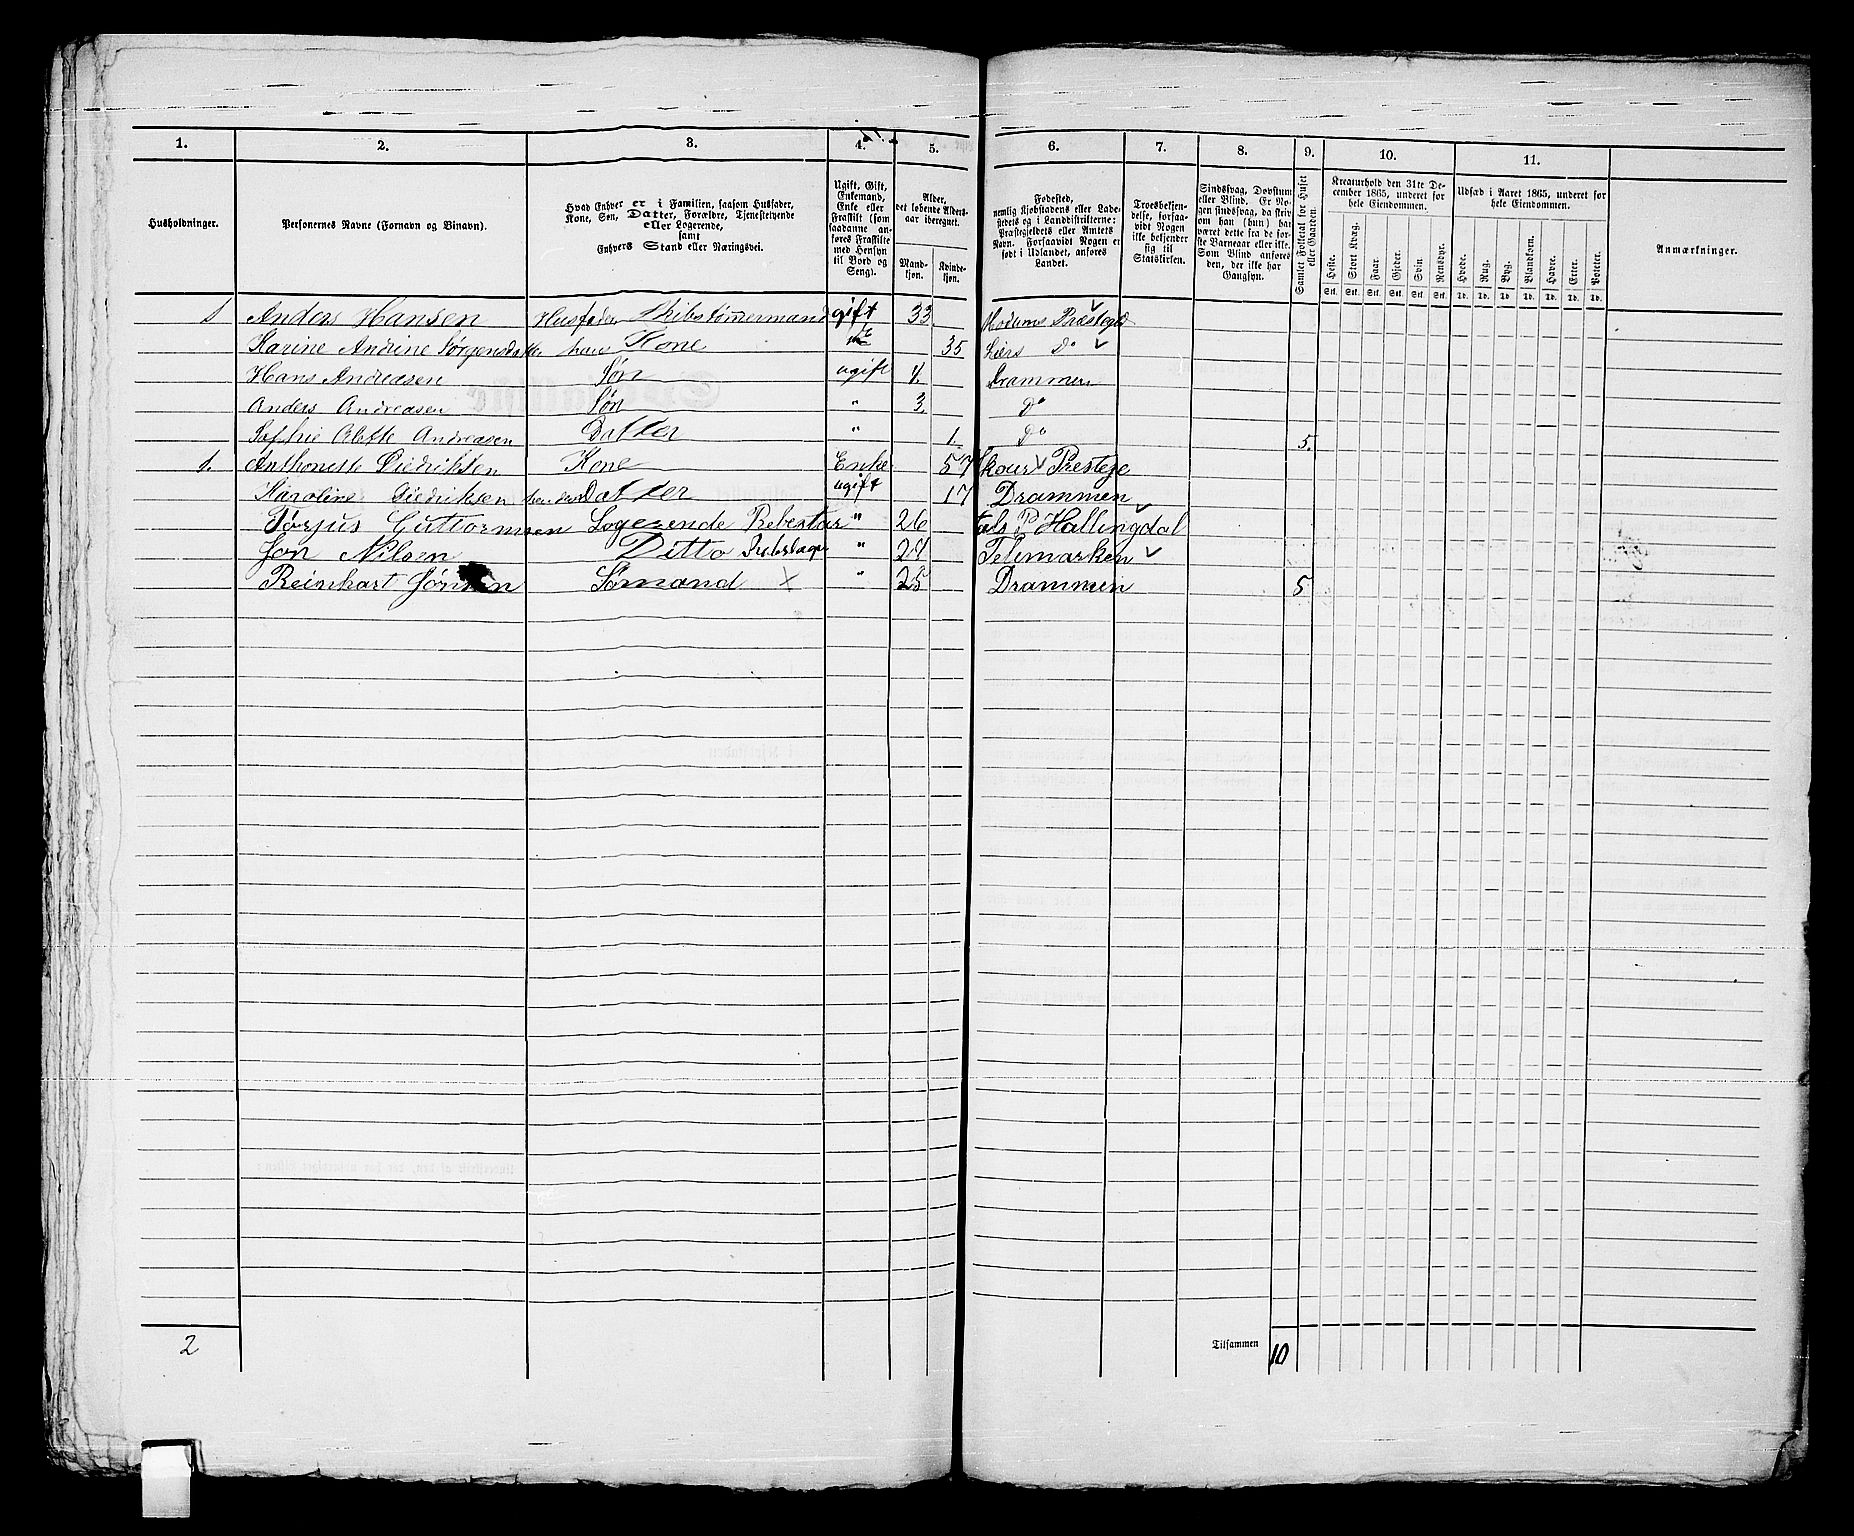 1. 2. 3. 4. 5. 6. 7. 8. 9. 10. 11.
Husholdninger.
Personernes Navne (Fornavn og Binavn).
Hvad Enhver er i Familien, saasom Husfader,
Kone, Søn, Datter, Forældre, Tjenestetyende
eller Logerende,
samt
Enhvers Stand eller Næringsvei.
Ugift, Gift,
Enkemand,
Enke eller
Fraskilt (som
saadanne an-
føres Fraskilte
med Hensyn
til Bord og
Seng).
Alder,
det løbende Alders-
aar iberegnet.
Mand-
kjøn.
Kvinde-
kjøn.
Fødested,
nemlig Kjøbstadens eller Lade-
stedets og i Landdistrikterne:
Præstegjeldets eller Amtets
Navn. Forsaavidt Nogen er
født i Udlandet, anføres
Landet.
Troesbekjen-
delse, forsaa-
vidt Nogen
ikke bekjender
sig til
Statskirken.
Sindssvag, Døvstum
eller Blind. Er No-
gen sindssvag, da skriv
om han (hun) har
været dette fra de før-
ste Barneaar eller ikke.
Som Blind anføres
den, der ikke har
Gangsyn.
Samlet Folketal for Huset
eller Gaarden.
Kreaturhold den 31te De-
cember 1865, underet for
hele Eiendommen.
Heste. Stort Kvæg. Faar. Gjeder. Svin. Rensdyr.
Stk. Stk. Stk. Stk. Stk. Stk.
Udsæd i Aaret 1865, underet for
hele Eiendommen.
Hvede. Rug. Byg. Blandkorn. Havre. Erter. Poteter.
Td. Td. Td. Td. Td. Td. Td.
Anmærkninger.
1 Anders Hansen Husfader gift 33. Modums Præstegd
Karine Andrine Jørgensdatter hans Kone 35 Liers Do
Hans Andreasen Søn ugift 4. Drammen
Anders Andreasen Søn " 3. Do
Andreasen Datter " 1. Do 5.
1. Anthonette Diedriksen Kone Enke 57 Præsteg
Karoline Diedriksen hendes Datter ugift 17 Drammen
Torjus Guttormsen Logerende " 26 Hallingdal
Jon Nilsen Ditto " 24 Telemarken
Reinhart Sømand X " 25 Drammen 5
2 Tilsammen 10